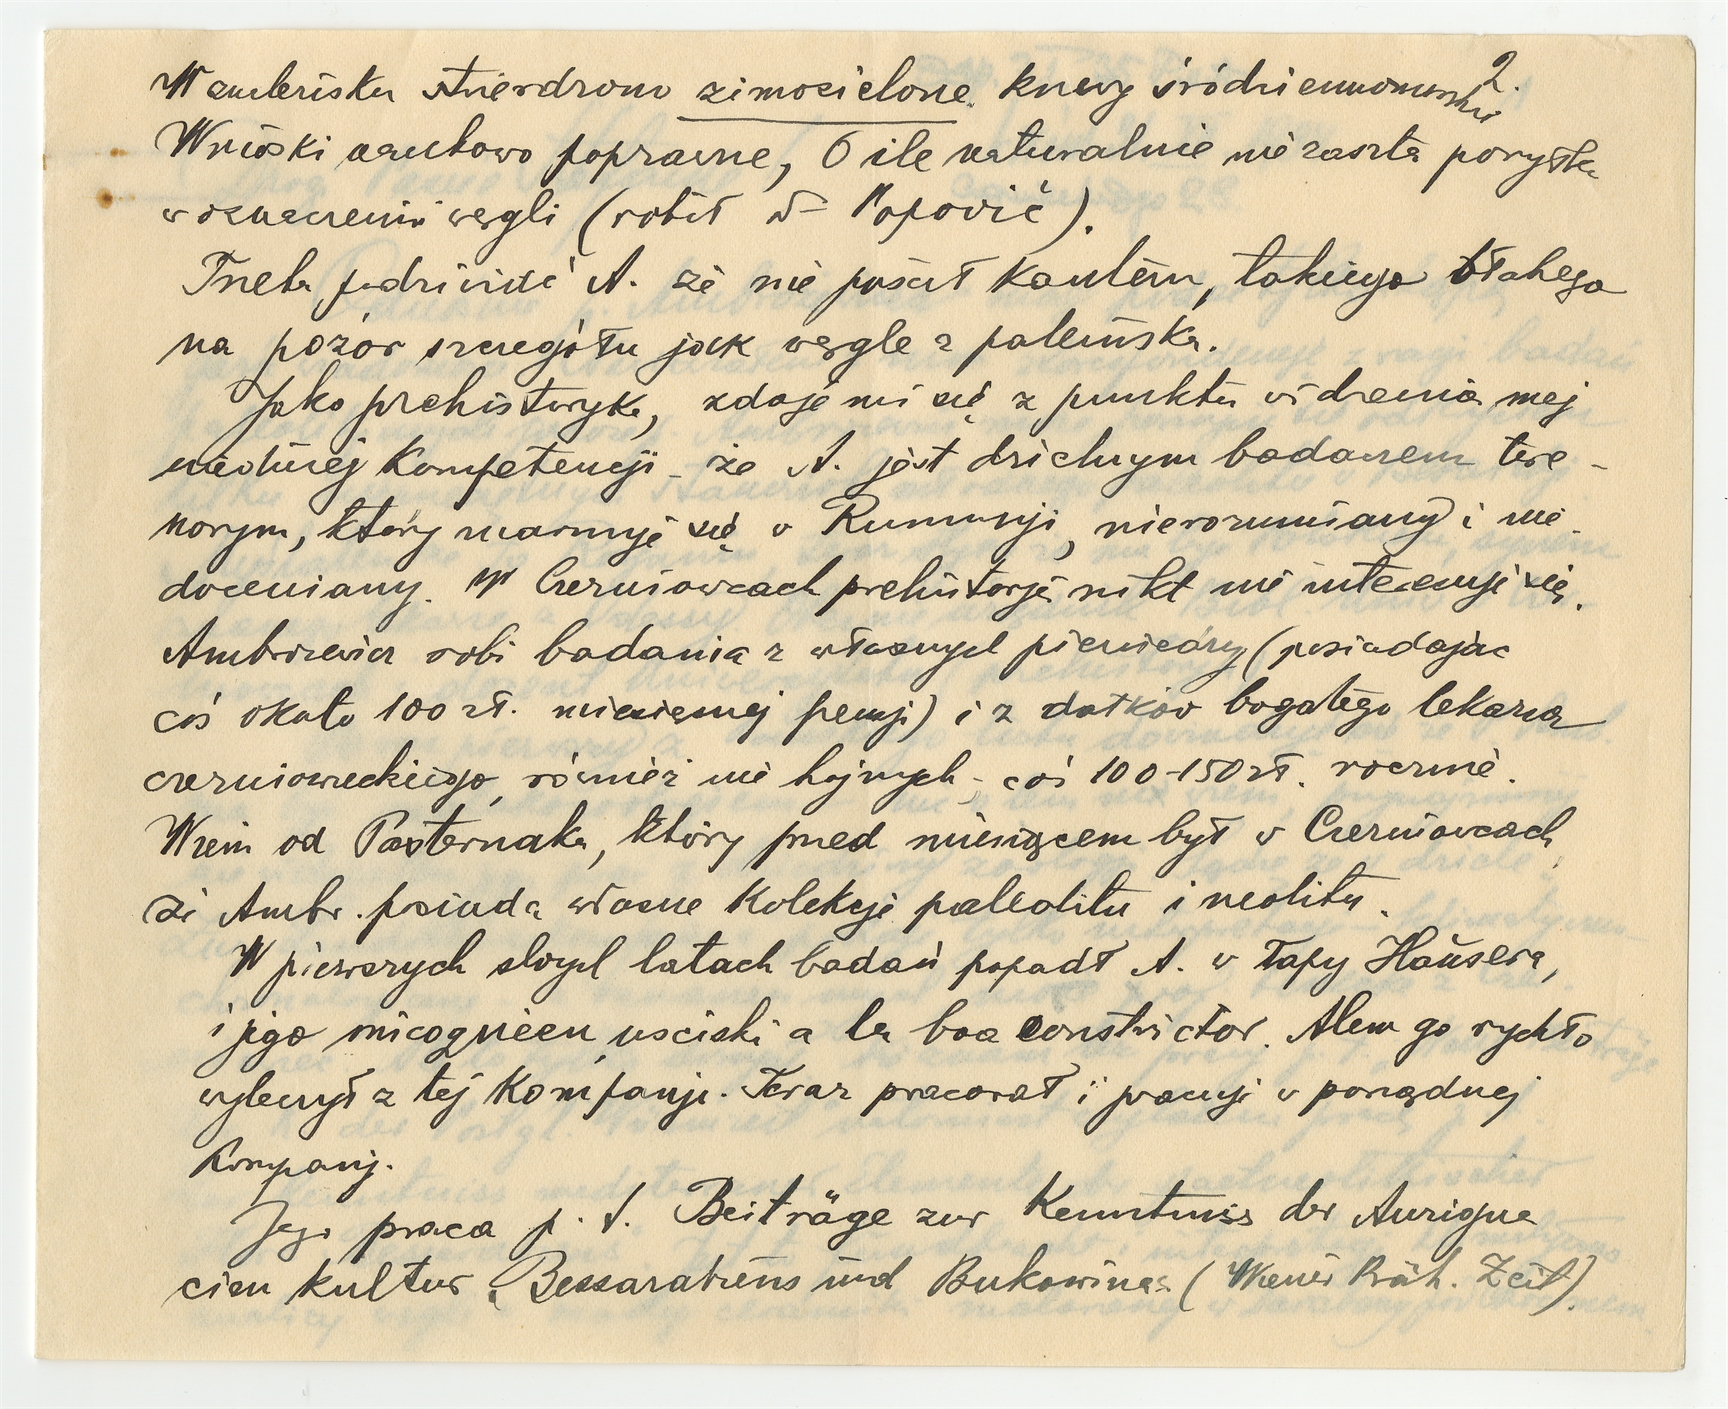 2.
stwierdzono zimozielone krzewy śródziemnomorskie
Wnioski naukowo poprawne, O ile naturalnie nie zaszła pomyłka
w oznaczeniu węgli (robił Popović).
Trzeba podziwiać A. że nie puścił kantem, takiego błahego
na pozór szczegółu jak węgle z paleniska.
Jako prehistoryka, zdaje mi się z punktu widzenia mej
kompetencji – że A. jest dzielnym badaczem tere-
nowym, który marnuje się w Rumunji, niezrozumiany i nie-
doceniany. W Czerniowcach prehistorją nikt nie interesuje się.
Ambrożewicz robi badania z własnych pieniędzy (posiadając
coś około 100 zł. miesięcznej pensji) i z datków bogatego lekarza
czerniowieckiego, również nie hojnych – coś 100–150 zł. rocznie.
Wiem od Pasternaka, który przed miesiącem był w Czerniowcach,
że Ambr. posiada własne kolekcje paleolitu i neolitu.
W pierwszych swych latach badań popadł A. w łapy Haŭsera,
i jego micoquieen, uściski a la boa constrictor. Alem go rychło
wyleczył z tej kompanji. Teraz pracował i pracuje w porządnej
kompanji.
Jego praca p. t. Beiträge zur Kenntniss der Aurigna
cien kultur Bessarabiens ŭnd Bukowinas (Wiener Präh. Zeit).